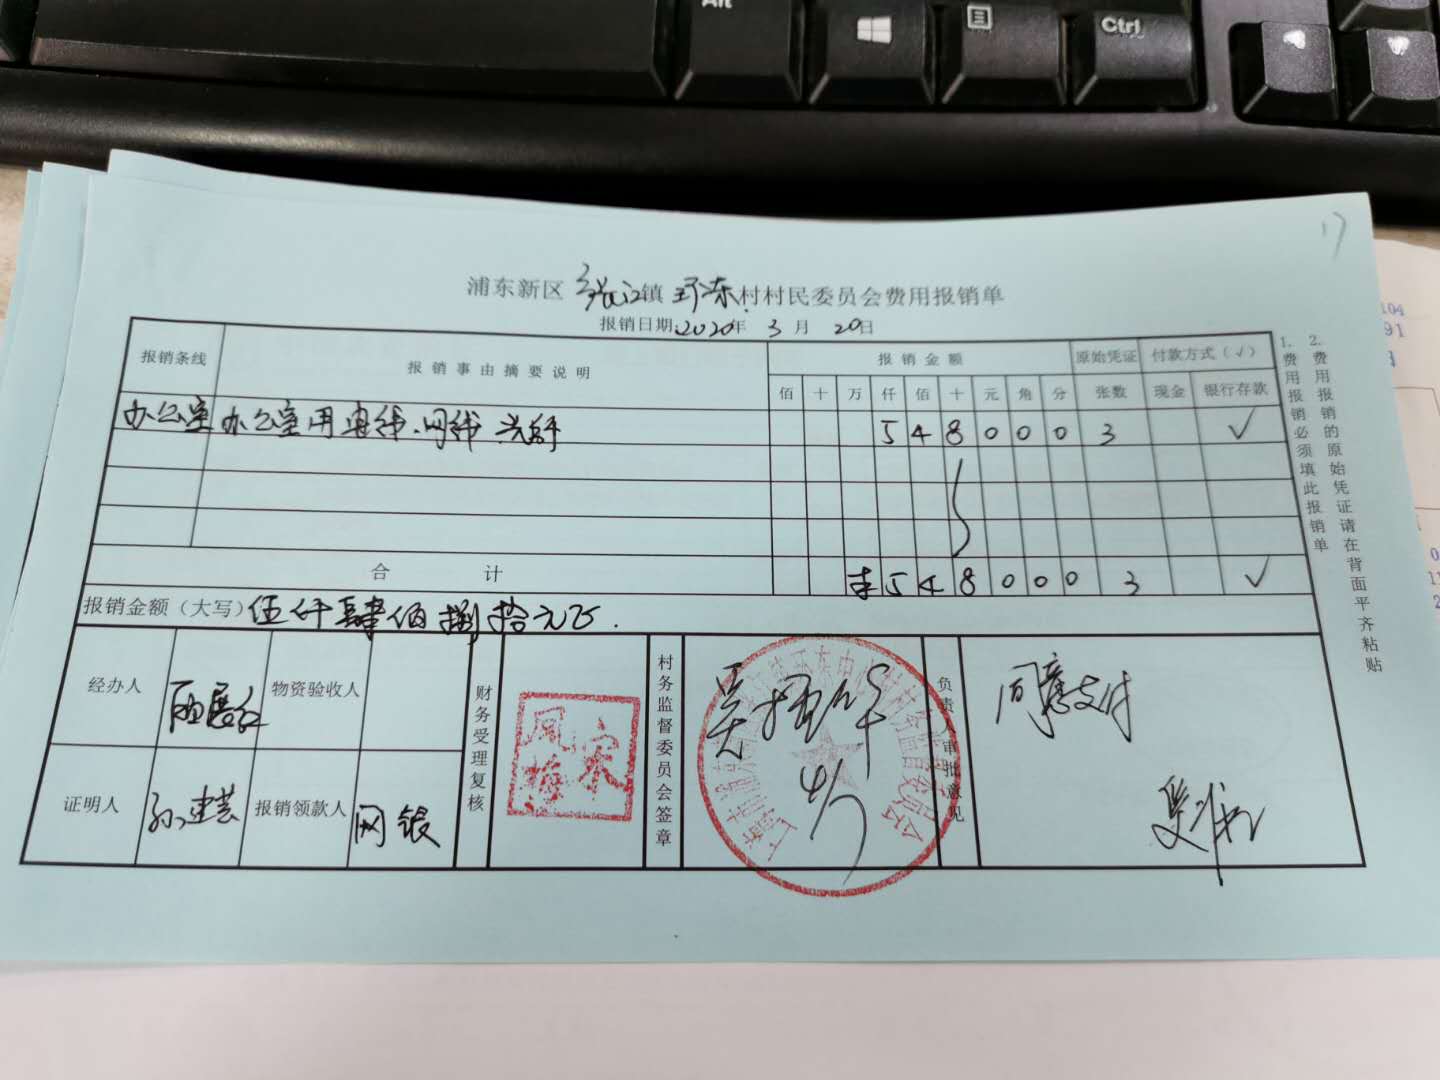 Alt
Ctrl
17
104
91
浦东新区 张江 镇 环东 村村民委员会费用报销单
报销日期 2020年 3 月 20日
报销条线 报销事由摘要说明 报销金额 原始凭证 付款方式(√)
佰 十 万 仟 佰 十 元 角 分 张数 现金 银行存款
办公室 办公室用电线、网线 5 4 8 0 0 0 3 √
合 计 5 4 8 0 0 0 3 √
报销金额(大写) 伍仟肆佰捌拾元正.
经办人 物资验收人
证明人 孙建芸 报销领款人 网银
财务受理复核
宋凤梅
村务监督委员会签章
负责人审批意见
同意支付
1.费用报销必须填此报销单
2.费用报销的原始凭证请在背面平齐粘贴